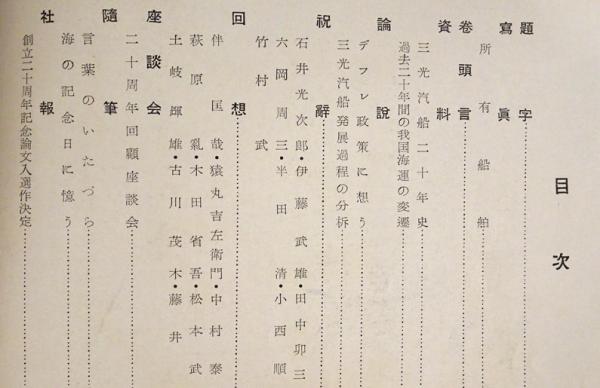 目次
題字
寫眞
所有船舶
卷頭言
資料
三光汽船二十年史
過去二十年間の我国海運の変遷
論說
デフレ政策に想う
三光汽船発展過程の分析
祝辭
石井光次郎・伊藤武雄・田中卯三
六岡周三・半田清・小西順
竹村武
回想
伴国哉・猿丸吉左衛門・中村泰
萩原氣・木田省吾・松本武
土岐輝雄・古川茂木・藤井
座談会
二十周年回顧座談会
隨筆
言葉のいたづら
海の記念日に憶う
社報
創立二十周年記念論文入選作決定